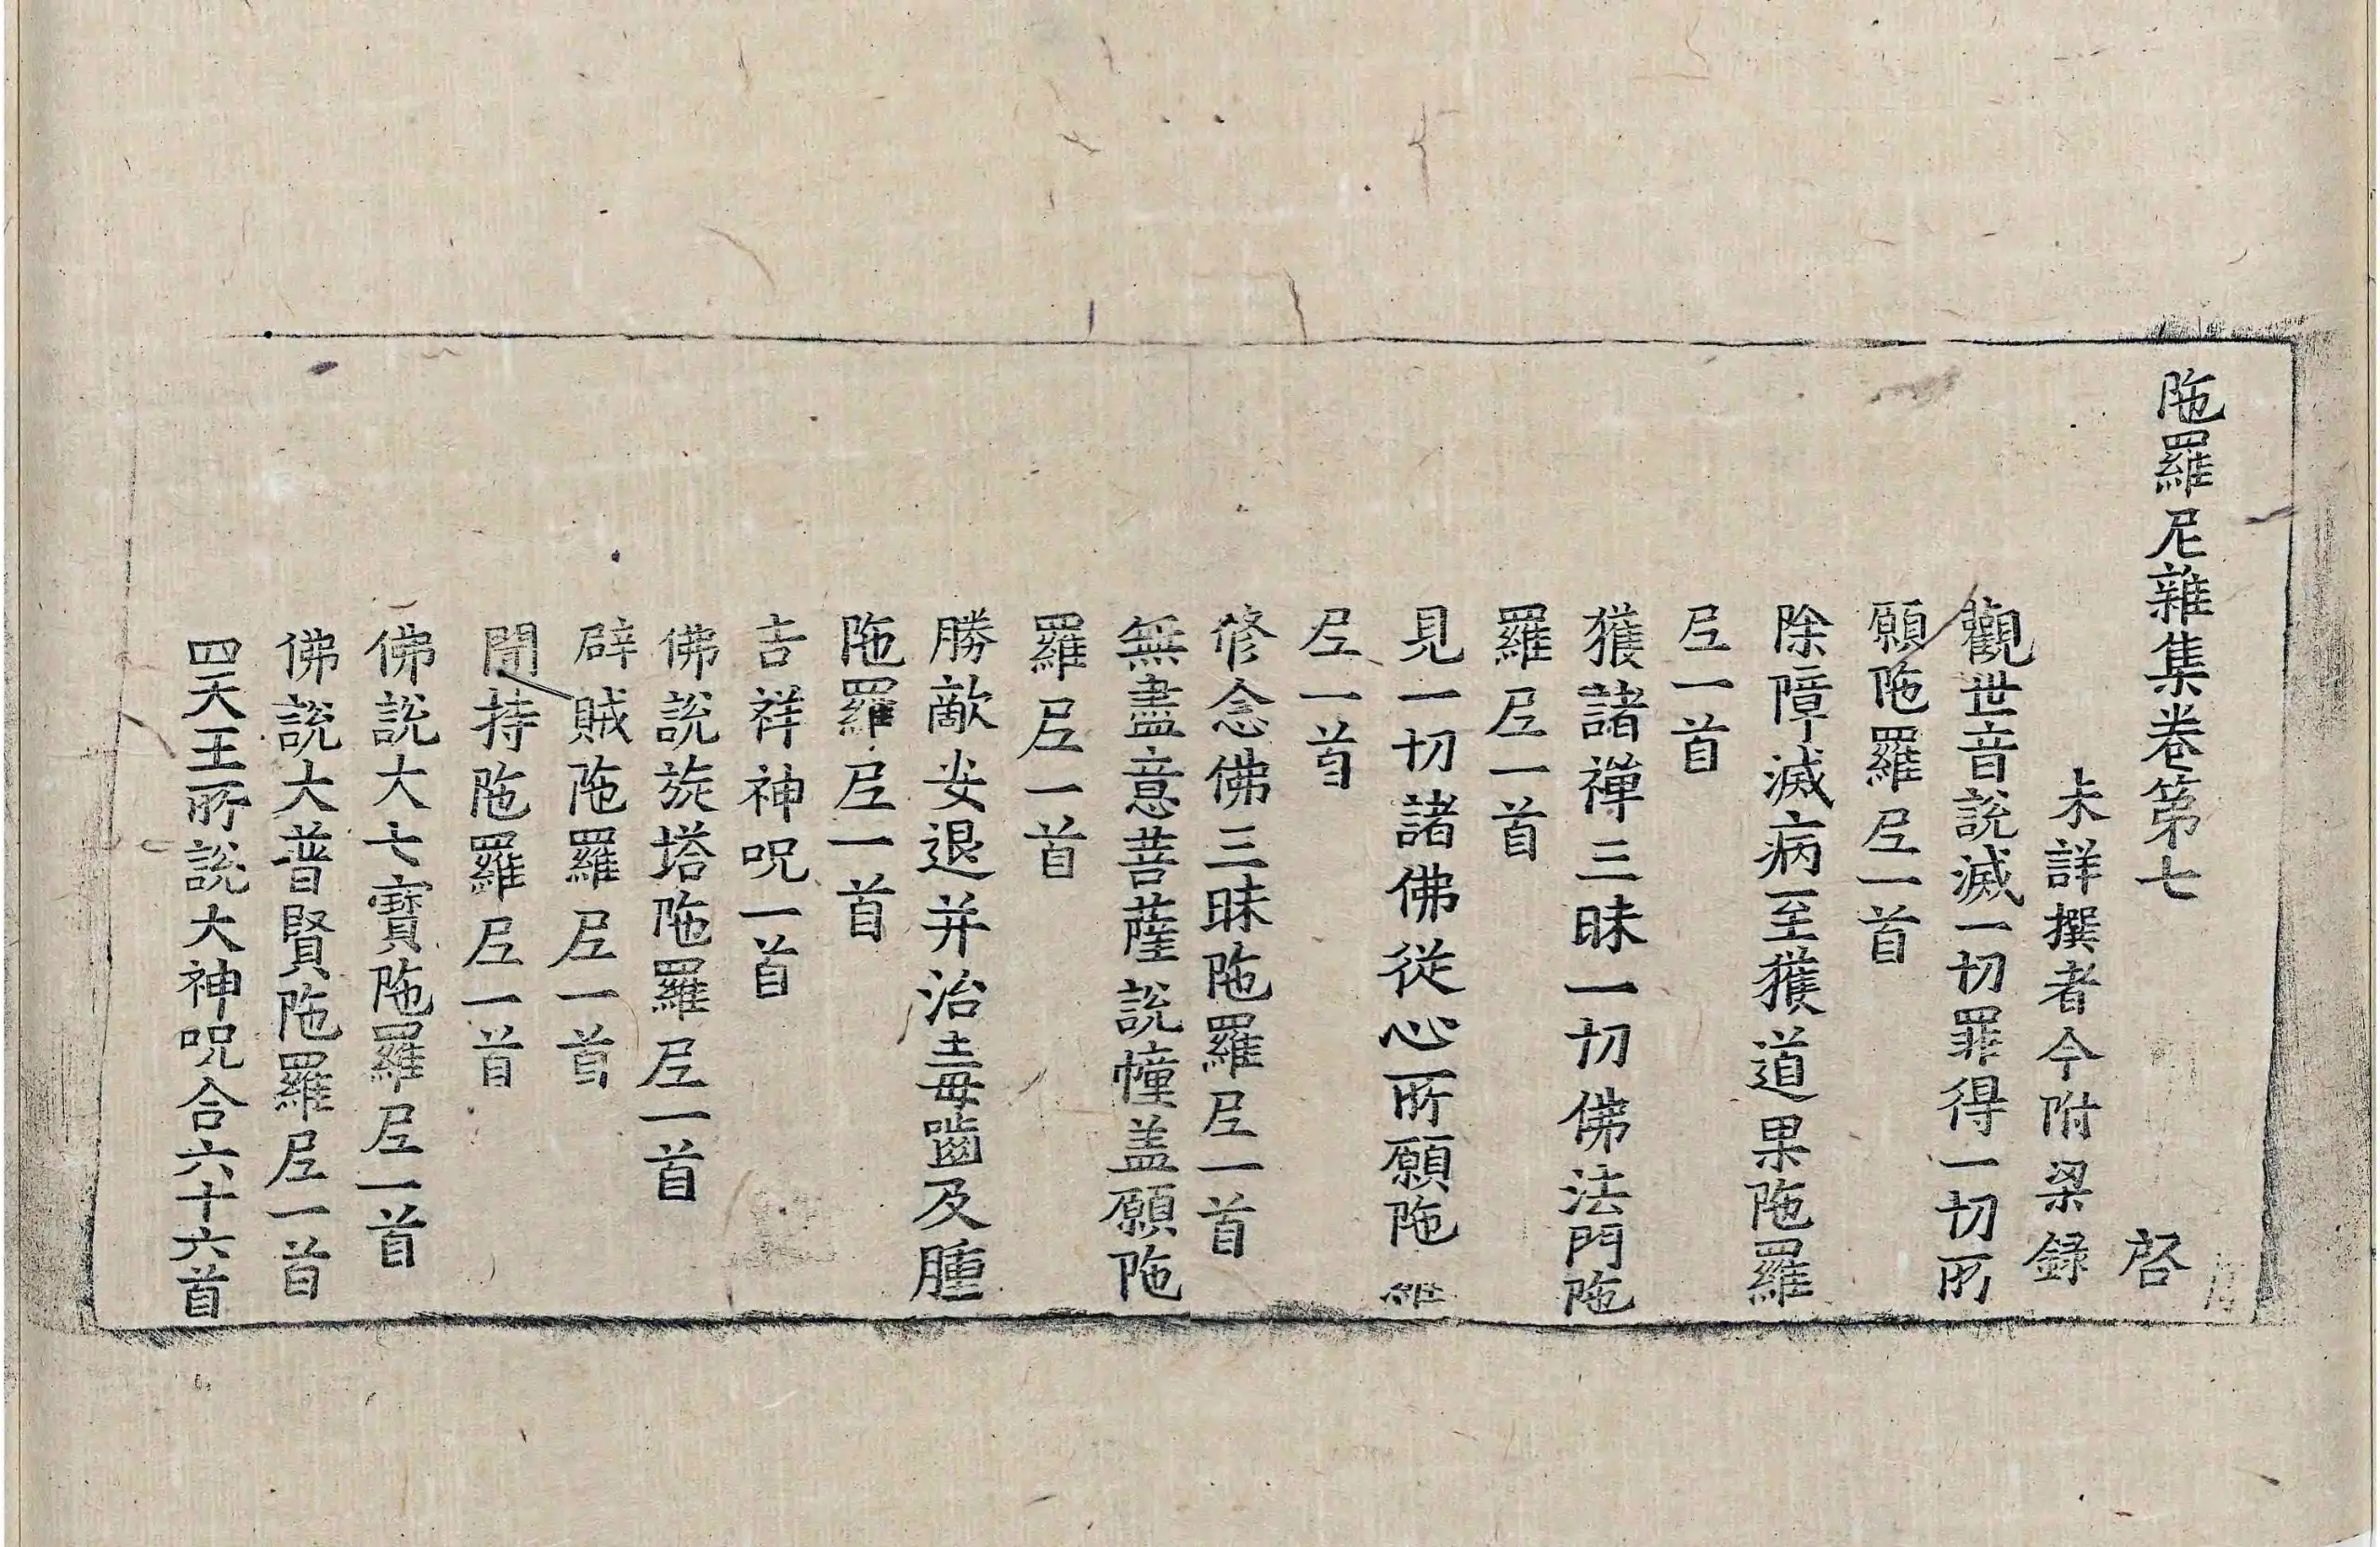 陁羅尼雜集卷第七 啓
未詳撰者今附梁録
觀世音說滅一切罪得一切所
願陁羅𡰱一首
除障滅病至獲道果陁羅
𡰱一首
獲諸禪三昧一切佛法門陁
羅𡰱一首
見一切諸佛從心所願陁羅
𡰱一首
修念佛三昧陁羅𡰱一首
無盡意菩薩說幢盖願陁
羅𡰱一首
勝敵安退并治毒齧及腫
陁羅𡰱一首
吉祥神呪一首
佛說旋塔陁羅𡰱一首
辟賊陁羅𡰱一首
聞持陁羅𡰱一首
佛說大七寶陁羅𡰱一首
佛說大普賢陁羅𡰱一首
四天王所說大神呪合六十六首